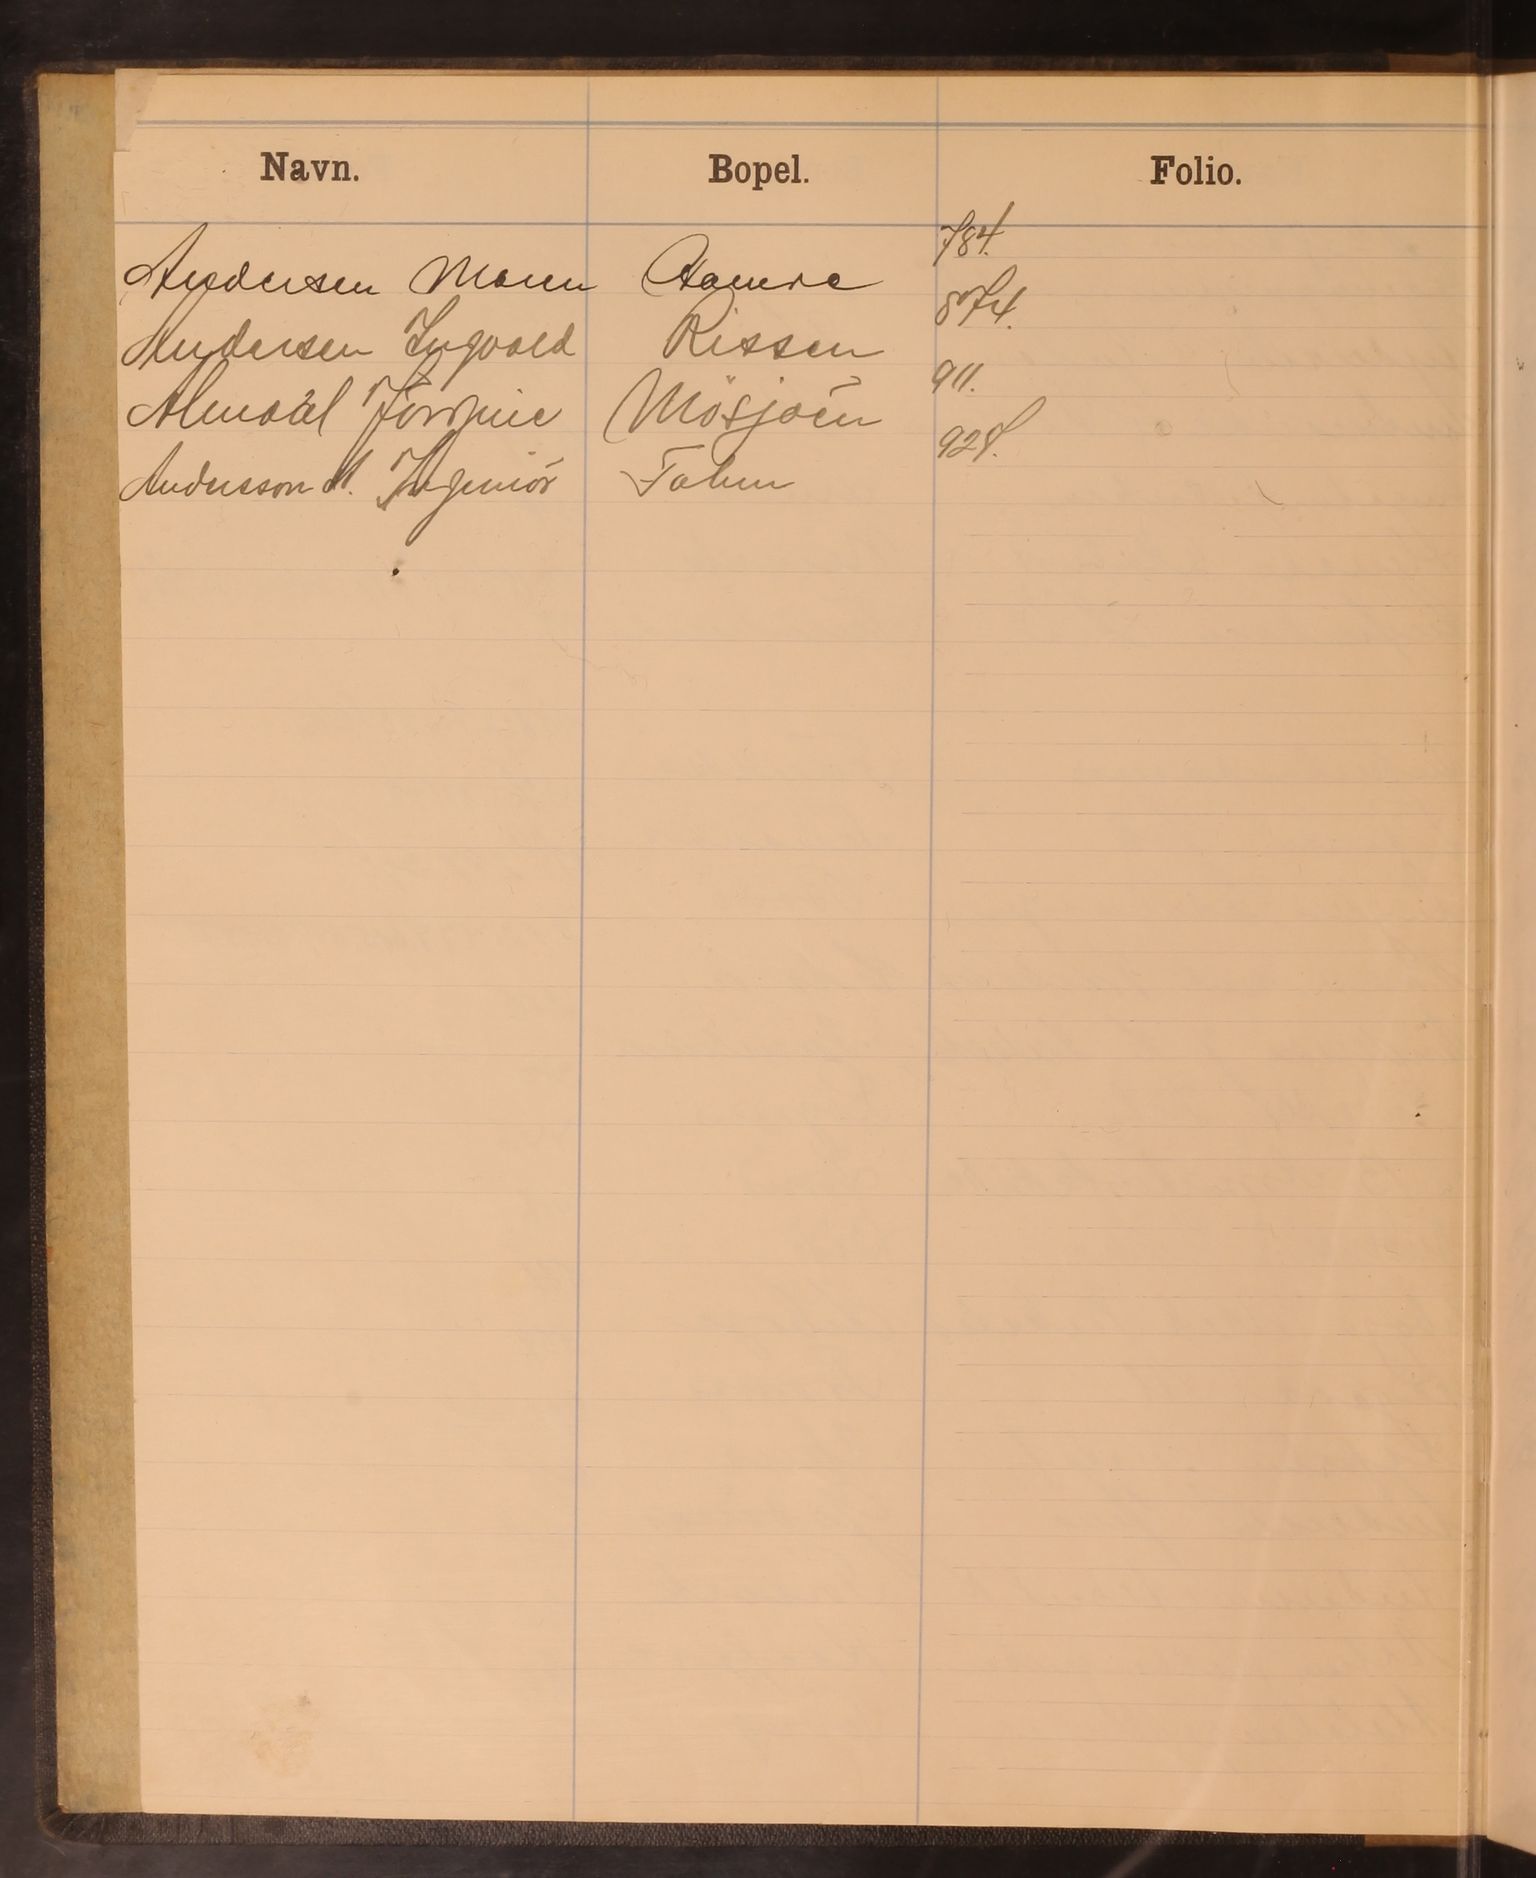 Navn. Bopel. Folio.
Andersen Maren 784.
Andersen Ingvald Rissen 874.
Almdal Jörgine Mosjöen 911.
Andersson A. Ingeniör 928.